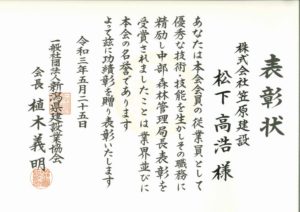 表彰状
株式会社笠原建設
松下高浩様
あなたは本会会員の従業員として
優秀な技術・技能を生かしその職務に
精励し中部森林管理局長表彰を
受賞されましたことは業界並びに
本会の名誉であります
よって茲に功績彰を贈り表彰いたします
令和三年五月二十五日
一般社団法人新潟県建設業協会
会長 植木義明